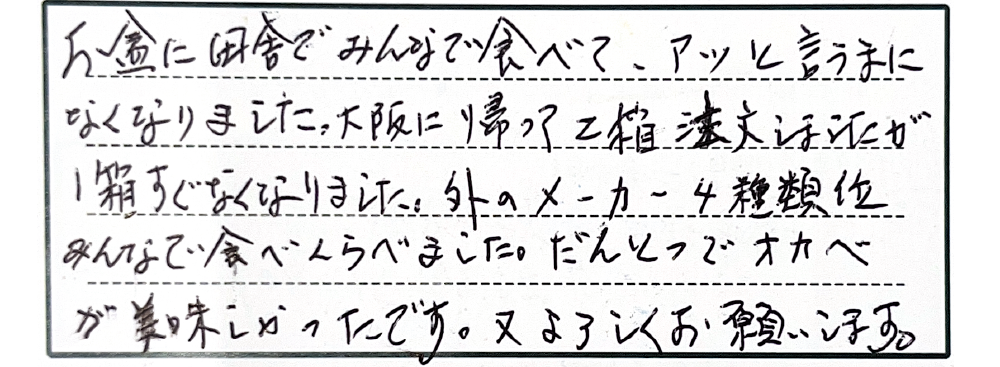 お盆に田舎でみんなで食べて、アッと言うまに
なくなりました。大阪に帰って2箱注文しましたが
1箱すぐなくなりました。外のメーカー4種類位
みんなで食べくらべました。だんとつでオカベ
が美味しかったです。又よろしくお願いします。